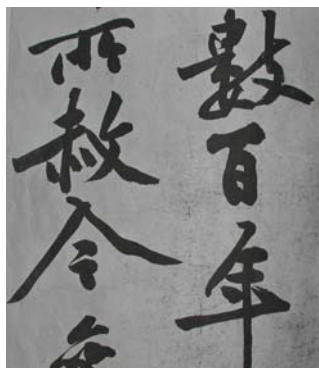 數百年
所赦今